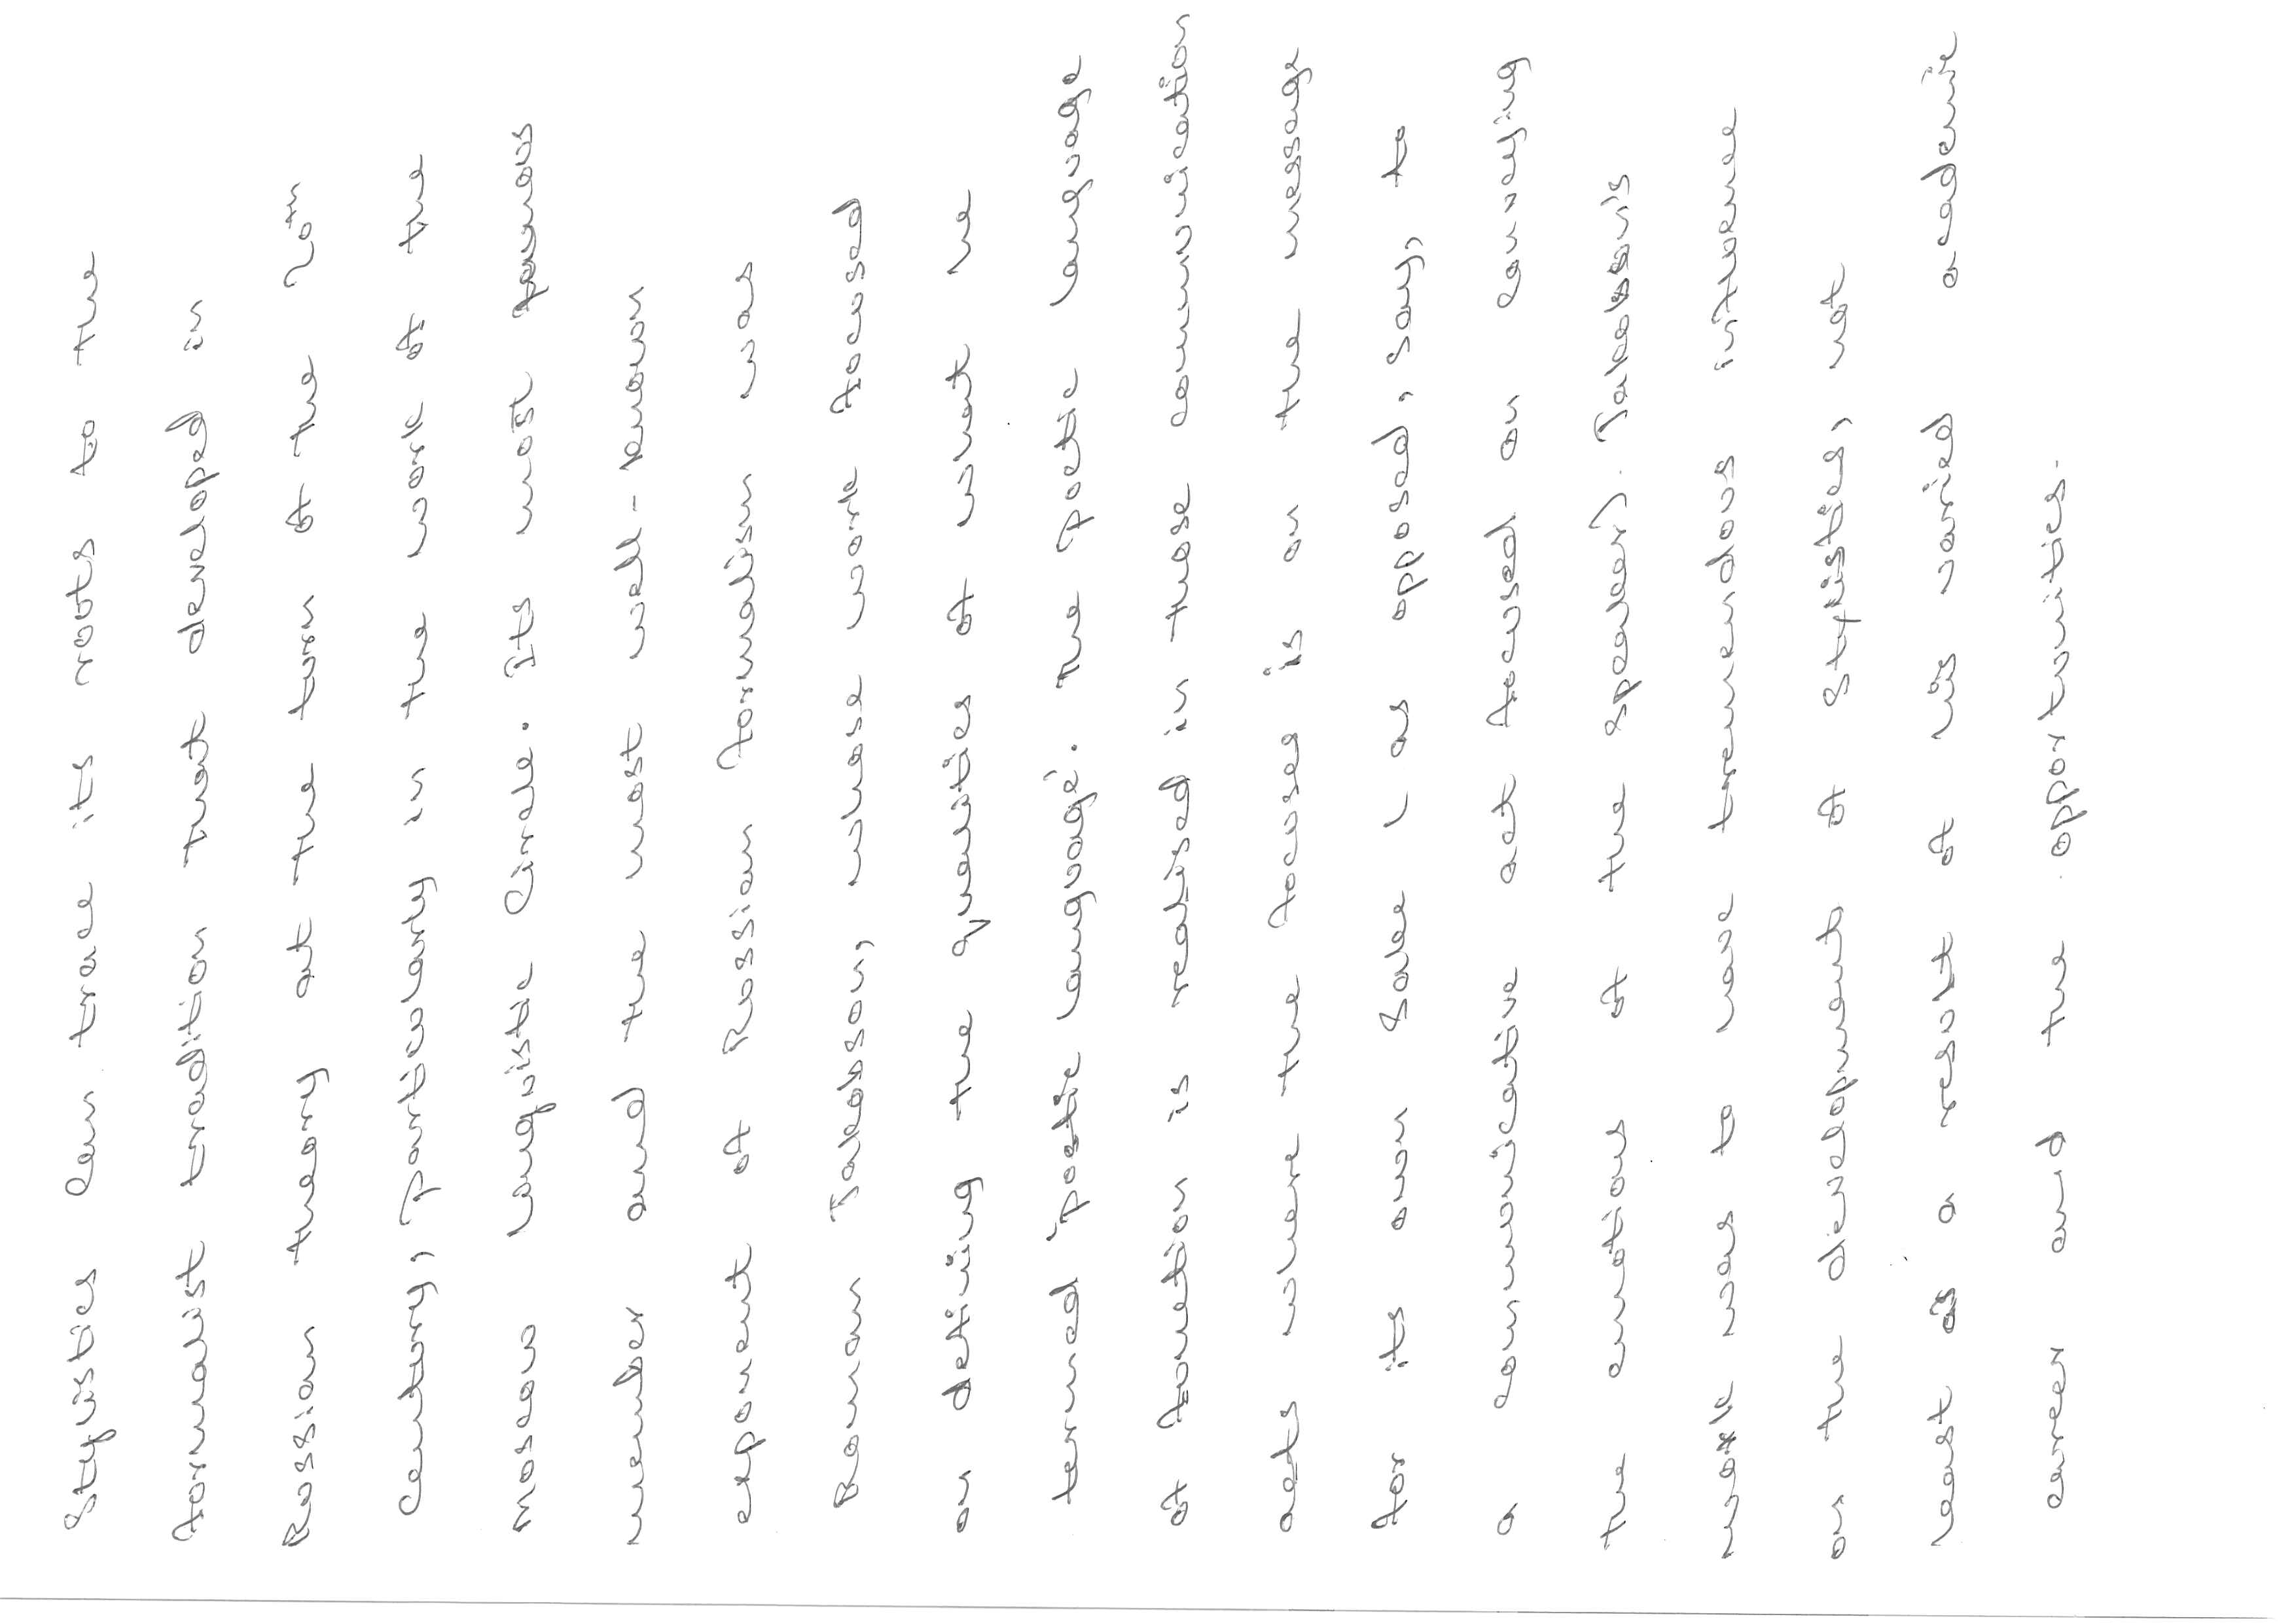 Stylistics can trace its roots to the
formalist tradition that developed in
Russian theory at the turn of the 20th
century, particularly in the work of the
Moscow Linguistic Circle. Its most famous
member and the most well-known
exponent of Russian formalism was
Roman Jakobson, whose work focused
on defining the qualities of what he
termed 'poetic language'. The poetic language
of function is realised in those communication
acts where the focuses is on the message
for its own sake (as opposed, say, to
a communicative act focused on conveying
the emotions of the speaker). Jakobson's
work was to have tremendous influence
on the development of stylistics, not
least as a result of his varied academic
career and the opportunities.